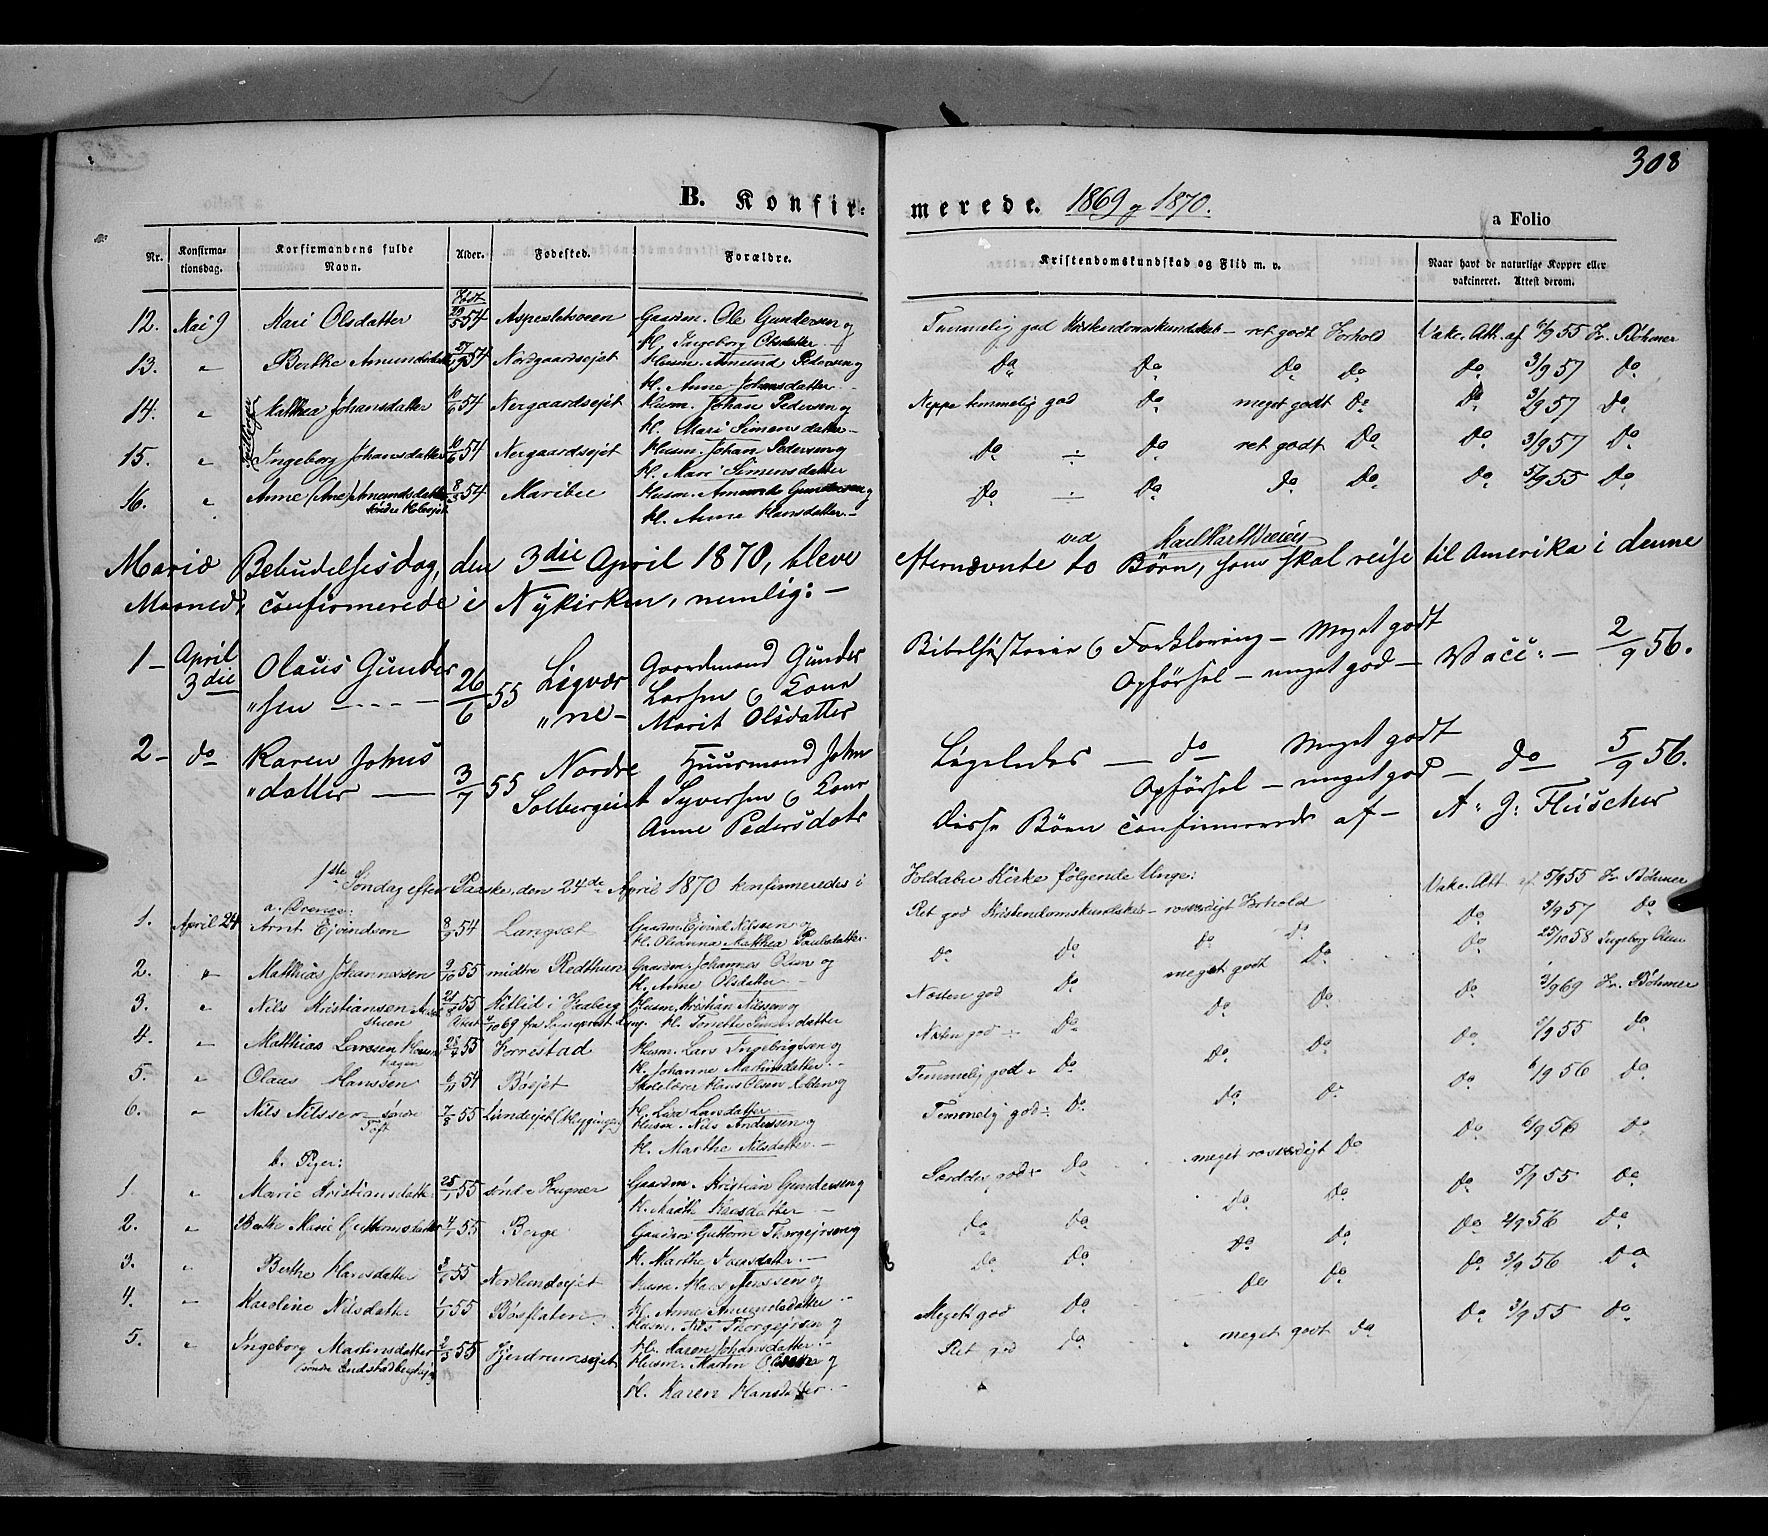 308
B. Konfirmerede. 1869 og 1870.
a Folio
Nr. Konfirmationsdag. Konfirmandens fulde Navn. Alder. Fødested. Forældre. Kristendomskundskab og Flid m. v. Naar havt de naturlige Kopper eller vakcineret. Attest derom.
Født
12. Mai 9 Kari Olsdatter 29/5 54 Gaardm. Ole Gundersen og Temmelig god Kristendomskundskab – ret godt Forhold Vakc. Att. af 5/9 55 Fr. Bøhmer
H. Ingeborg Olsdatter –
13. " Berthe Amundsdatter 27/9 54 Nordgaardsejet Husm. Amund Pedersen og Do Do Do Do Do 3/9 57 Do
H. Anne Johansdatter –
14. " Mathea Johansdatter 10/6 54 Nergaardsejet Husm. Johan Pedersen og Neppe temmelig god Do meget godt Do Do 3/9 57 Do
Tvillinger
H. Mari Simensdatter –
15. " Ingeborg Johansdatter 10/6 54 Nergaardsejet Husm. Johan Pedersen og Do ÷ Do ret godt Do Do 3/9 57 Do
H. Mari Simensdatter
16. " Anne (Ane) Amundsdatter 8/8 54 Maribee Husm. Amund Gundersen og Do ÷ Do Do Do Do 5/9 55 Do
H. Anne Hansdatter –
Mariæ Bebudelsesdag, den 3die April 1870, bleve efternævnte to Børn, som skal reise til Amerika i denne
ved
Maaned, confirmerede i Nykirken, nemlig: –
1 – April 3die Olaus Gunder 26/6 55 Ligvær Gaardmand Gunder Bibelhistorie & Forklaring – Meget godt Vacc: – 2/9 56.
"sen – "ne – Larsen & Kone Opførsel – meget god –
Marit Olsdatter
2 – do Karen Johns 3/7 55 Nordre Huusmand John Ligeledes – do Meget godt do 5/9 56.
"datter – Solbergeiet Syversen & Kone Opførsel – meget god –
Anne Pedersdatr Disse Børn confirmerede af – A. G. Fleischer
1ste Søndag efter Paaske, den 24de April 1870 konfirmeredes i Foldabu Kirke følgende Unge:
a. Drenge:
1. April 24 Arnt Ejvindsen 8/9 54 Langsæt Gaardm. Ejvind Nilssen og Ret god Kristendomskundskab – rosværdigt Forhold Vakc. Att. af 5/9 55 Fr. Bøhmer
H. Olianna Mathea Paulsdatter
2. " Matthias Johannessen 9/10 55 midtre Redthun Gaardm. Johannes Olsen og Do Do Do Do Do 3/9 57 Do
H. Anne Olsdatter –
3. " Nils Kristiansen 21/8 55 i Faaberg Husm. Kristian Nilssen og Næsten god Do meget godt Do Do 25/10 58 Ingeborg Olsen
H. Tonette Simensdatter
4. " Matthias Larssen 28/7 55 Forrestad Husm. Lars Ingebrigtsen og Næsten god ÷ Do Do Do Do 3/9 69 Fr. Bøhmer
H. Johanne Martinsdatter –
5. " Olaus Hanssen 6/11 54 Bøejet Skolelærer Hans Olsen og Temmelig god Do Do Do Do 5/9 55 Do
H. Lisa Larsdatter
6. " Nils Nilssen søndre Toft 7/8 55 Lundejet (Heggingen) Husm. Nils Anderssen og Temmelig god ÷ Do Do Do Do 6/9 56 Do
H. Marthe Nilsdatter –
b. Piger:
1. " Marie Kristiansdatter 25/1 55 søndre Fougner Gaardm. Kristian Gundersen og Særdeles god Do meget rosværdigt Do Do 6/9 56 Do
H. Marith Hansdatter –
2. " Berthe Marie Guttormsdatter 4/7 55 Berge Gaardm. Guttorm Thorgejrsen og Do Do Do Do Do 5/9 55 Do
H. Marthe Iversdatter –
3. " Berthe Hansdatter 8/5 55 Nordlundsejet Husm. Hans Hanssen og Do Do Do Do Do 2/9 56 Do
H. Anne Amundsdatter –
4. " Karoline Nilsdatter 1/1 55 Bøsflaten Husm. Nils Thorgejrsen og Meget god Do Do Do Do 3/9 56 Do
H. Karen Johansdatter –
5. " Ingeborg Martinsdatter 2/3 55 Gjerdrumsejet Husm. Martin og Ret god Do meget godt Do Do 3/9 55 Do
H. Karen Hansdatter –